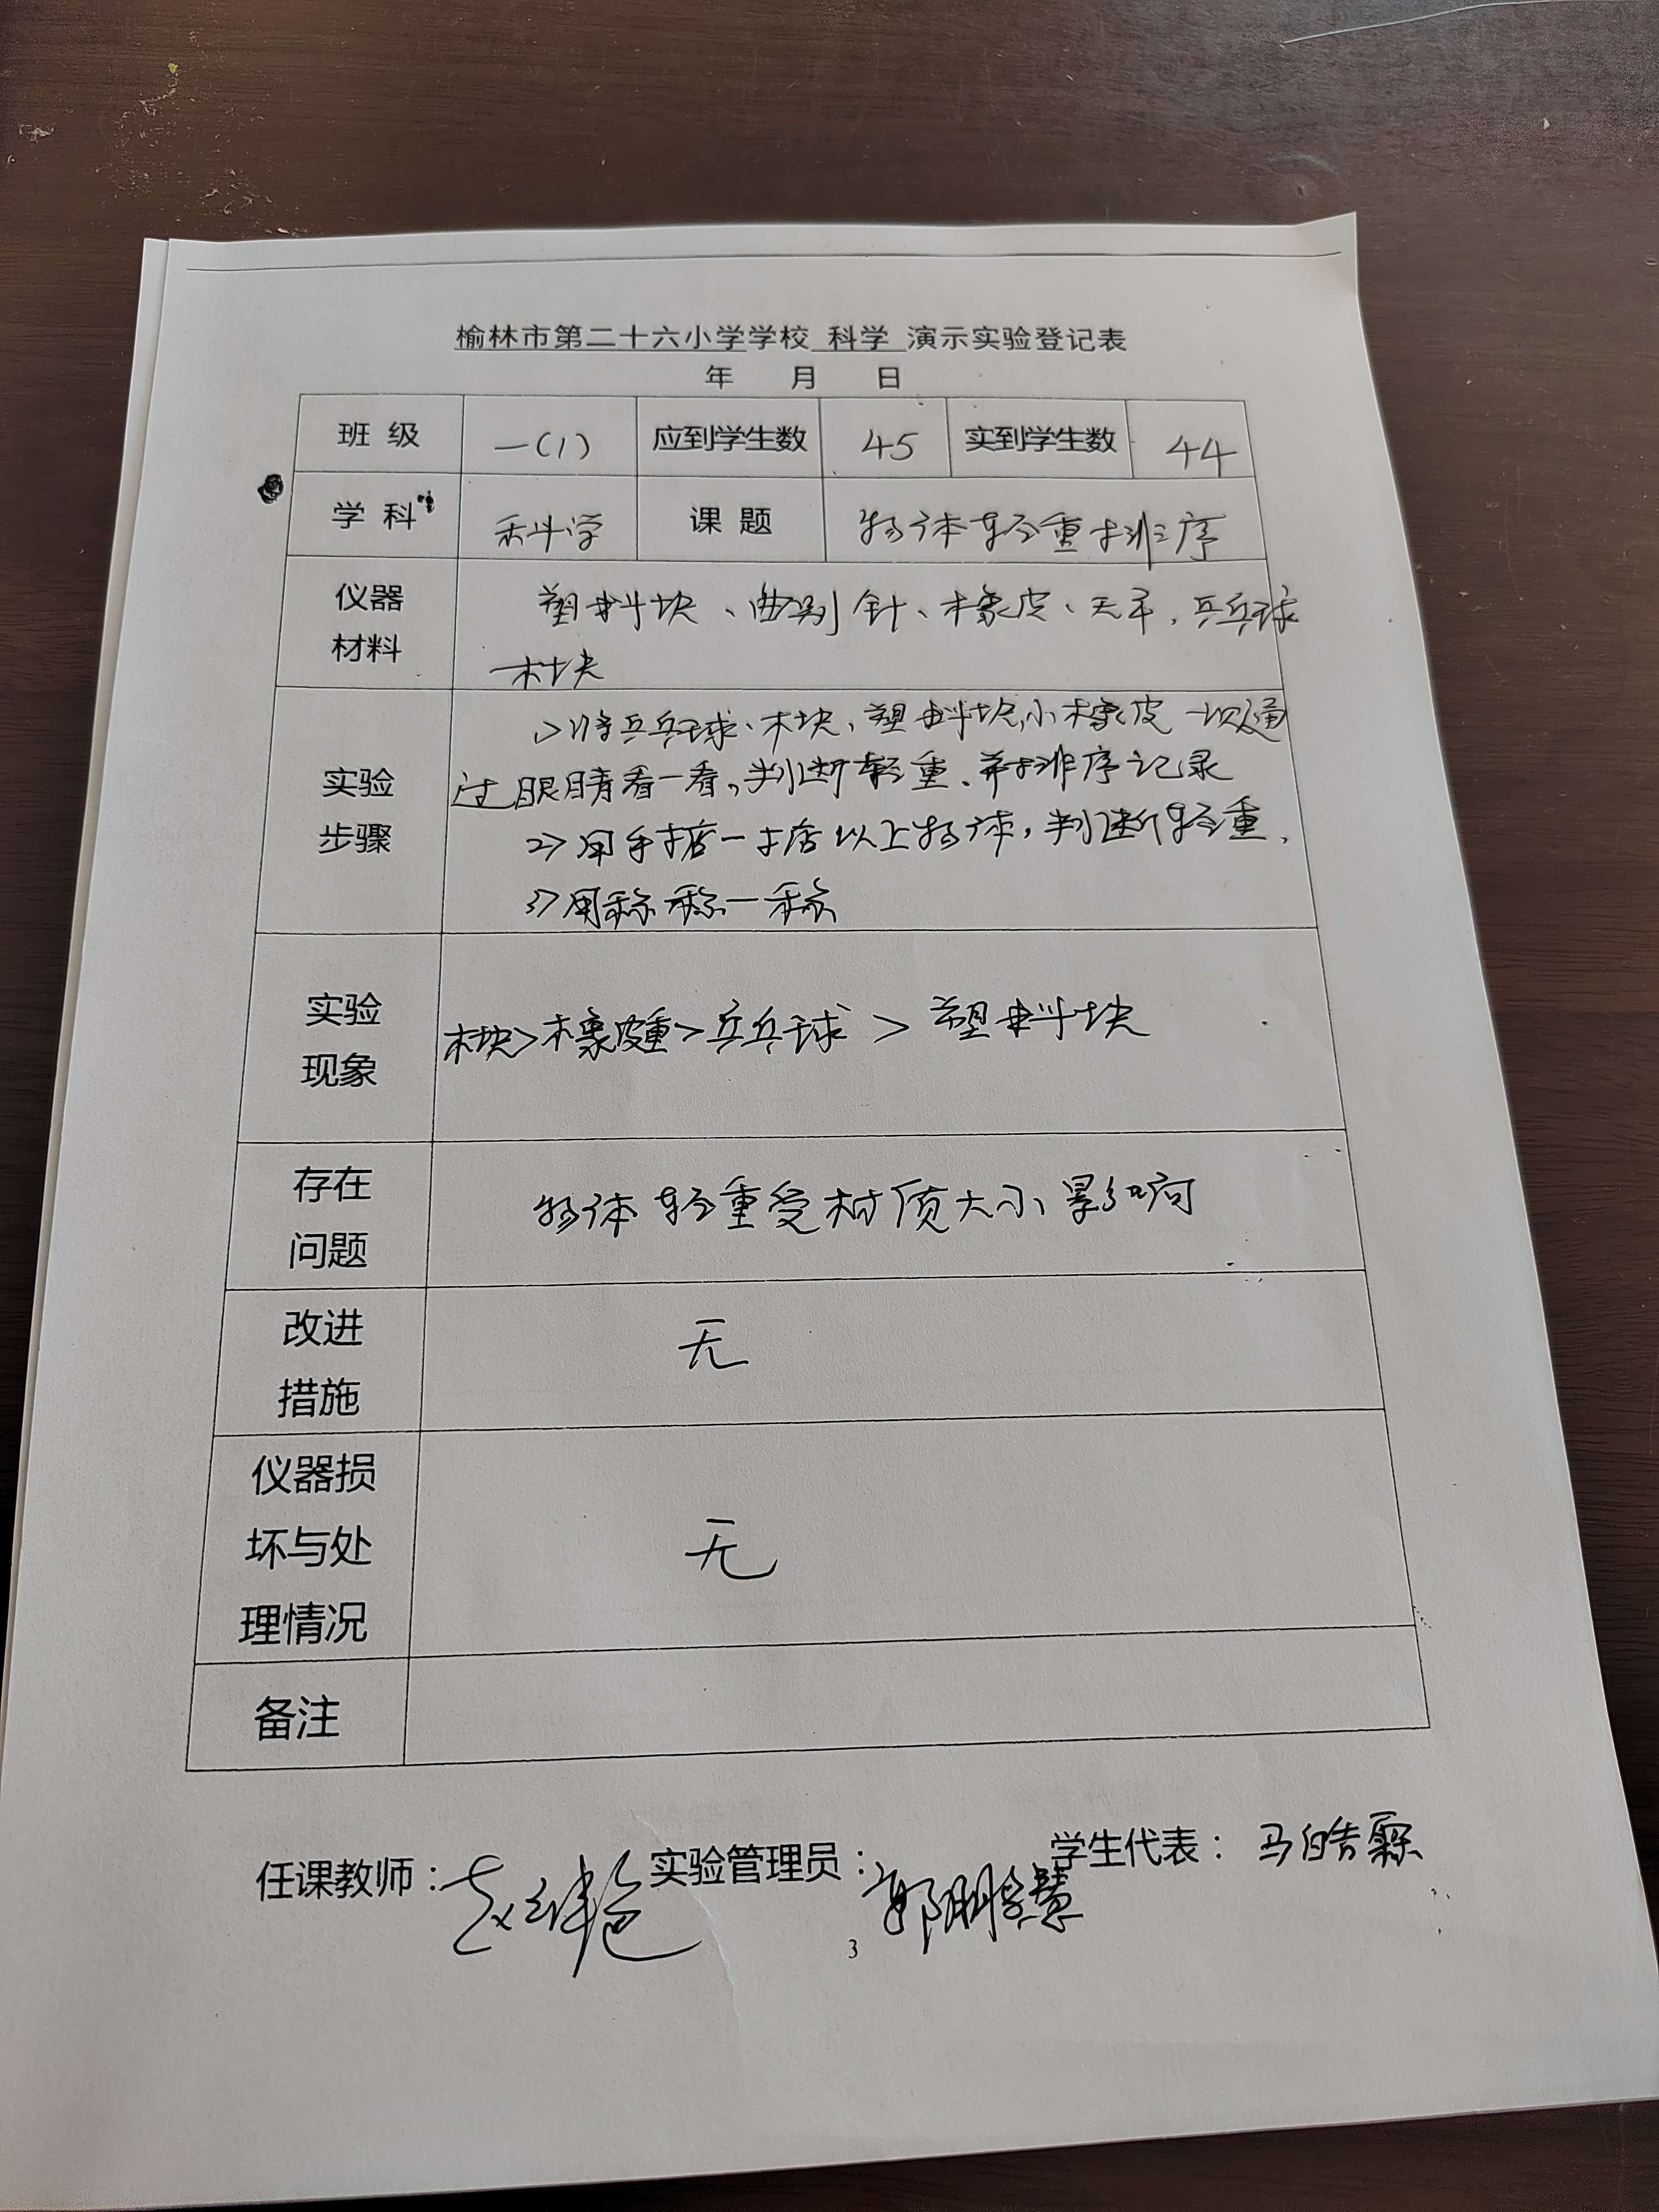 榆林市第二十六小学学校 科学 演示实验登记表
年 月 日
班 级 一(1) 应到学生数 45 实到学生数 44
学 科 科学 课 题 物体轻重排序
仪器 材料
塑料块、曲别针、橡皮、天平、乒乓球
木块
实验 步骤
1>将乒乓球、木块、塑料块,小橡皮一次通
过眼睛看一看,判断轻重、并排序记录
2>用手掂一掂以上物体,判断轻重.
3>用称称一称
实验 现象
木块>橡皮重>乒乓球 > 塑料块
存在 问题
物体轻重受材质大小影响
改进 措施
无
仪器损 坏与处 理情况
无
备注
任课教师: 实验管理员: 学生代表: 马皓霖
3